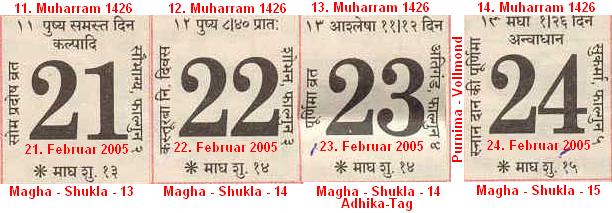 11. Muharram 1426
११ पुष्य समस्त दिन
कल्पादि
सोम प्रदोष व्रत
21
सौभाग्य, फाल्गुन २
21. Februar 2005
* माघ शु. १३
Magha - Shukla - 13
12. Muharram 1426
१२ पुष्य ८/४० प्रात:
कस्तूरबा नि. दिवस
22
शोभन, फाल्गुन ३
22. Februar 2005
* माघ शु. १४
Magha - Shukla - 14
13. Muharram 1426
१३ आश्लेषा ११/१२ दिन
पूर्णिमा व्रत
23
अतिगंड, फाल्गुन ४
23. Februar 2005
* माघ शु. १४
Magha - Shukla - 14
Adhika-Tag
Purnima - Vollmond
14. Muharram 1426
मघा १/२६ दिन
अन्वाधान
स्नान दान की पूर्णिमा
24
सुकर्मा, फाल्गुन ५
24. Februar 2005
* माघ शु. १५
Magha - Shukla - 15